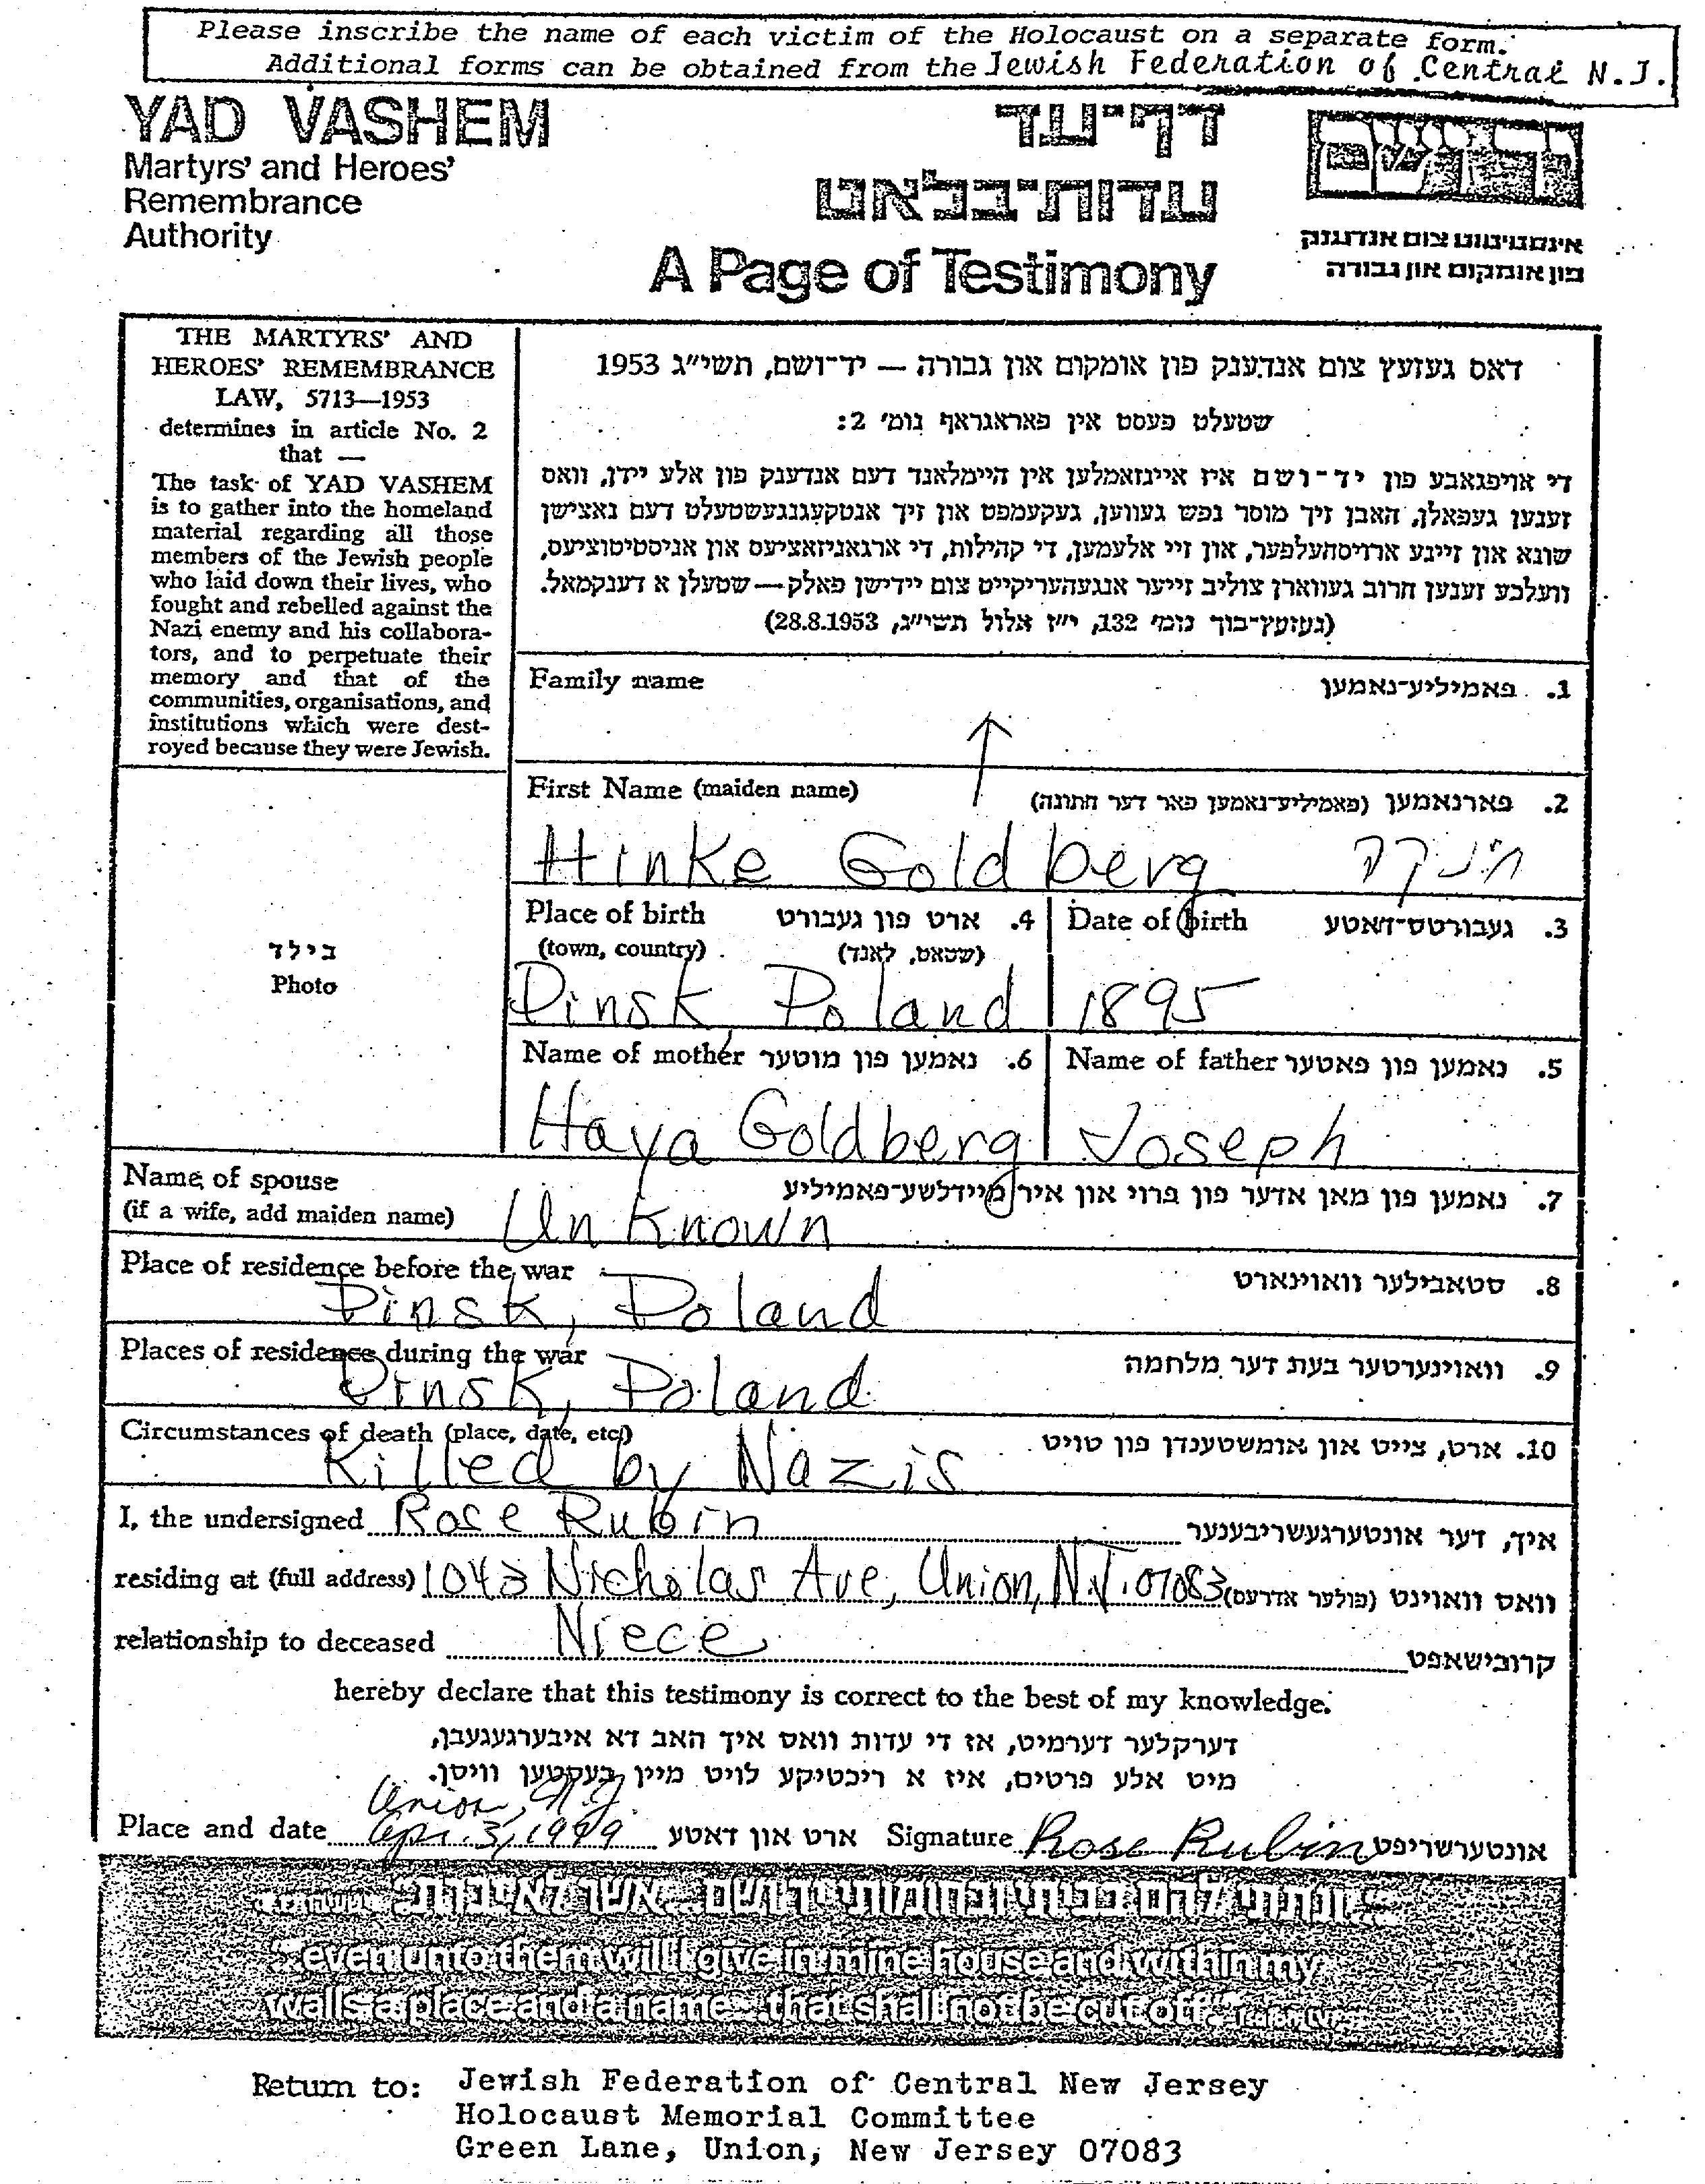 Please inscribe the name of each victim of the Holocaust on a separate form.
Additional forms can be obtained from the Jewish Federation of Central N.J.
YAD VASHEM
Martyrs' and Heroes'
Remembrance
Authority
דף־עד
עדות־בלאט
A Page of Testimony
יד ושם
אינסטיטוט צום אנדענק
פון אומקום און גבורה
THE MARTYRS' AND
HEROES' REMEMBRANCE
LAW, 5713—1953
determines in article No. 2
that —
The task of YAD VASHEM
is to gather into the homeland
material regarding all those
members of the Jewish people
who laid down their lives, who
fought and rebelled against the
Nazi enemy and his collabora-
tors, and to perpetuate their
memory and that of the
communities, organisations, and
institutions which were dest-
royed because they were Jewish.
דאס געזעץ צום אנדענק פון אומקום און גבורה — יד־ושם, תשי״ג 1953
שטעלט פעסט אין פאראגראף נומ׳ 2:
די אויפגאבע פון יד־ושם איז איינזאמלען אין היימלאנד דעם אנדענק פון אלע יידן, וואס
זענען געפאלן, האבן זיך מוסר נפש געווען, געקעמפט און זיך אנטקעגנגעשטעלט דעם נאצישן
שונא און זיינע ארויסהעלפער, און זיי אלעמען, די קהילות, די ארגאניזאציעס און אינסטיטוציעס,
וועלכע זענען חרוב געווארן צוליב זייער אנגעהעריקייט צום יידישן פאלק — שטעלן א דענקמאל.
(געזעץ־בוך נומ׳ 132, י״ז אלול תשי״ג, 28.8.1953)
Family name 1. פאמיליע־נאמען
First Name (maiden name) 2. פארנאמען (פאמיליע־נאמען פאר דער חתונה)
Hinke Goldberg
Place of birth 4. ארט פון געבורט
(town, country) (שטאט, לאנד)
Pinsk, Poland
Date of birth 3. געבורטס־דאטע
1895
בילד
Photo
Name of mother 6. נאמען פון מוטער
Haya Goldberg
Name of father 5. נאמען פון פאטער
Joseph
Name of spouse 7. נאמען פון מאן אדער פון פרוי און איר מיידלשע־פאמיליע
(if a wife, add maiden name) Unknown
Place of residence before the war 8. סטאבילער וואוינארט
Pinsk, Poland
Places of residence during the war 9. וואוינערטער בעת דער מלחמה
Pinsk, Poland
Circumstances of death (place, date, etc.) 10. ארט, צייט און אומשטענדן פון טויט
Killed by Nazis
I, the undersigned Rose Rubin איך, דער אונטערגעשריבענער
residing at (full address) 1043 Nicholas Ave, Union, N.J. 07083 וואס וואוינט (פולער אדרעס)
relationship to deceased Niece קרובישאפט
hereby declare that this testimony is correct to the best of my knowledge.
דערקלער דערמיט, אז די עדות וואס איך האב דא איבערגעגעבן,
מיט אלע פרטים, איז א ריכטיקע לויט מיין בעסטען וויסן.
Union, N.J.
Place and date Apr. 3, 1999 ארט און דאטע Signature Rose Rubin אונטערשריפט
ונתתי להם בביתי ובחומותי יד ושם... אשר לא יכרת
"...even unto them will I give in mine house and within my
walls a place and a name... that shall not be cut off"
Return to: Jewish Federation of Central New Jersey
Holocaust Memorial Committee
Green Lane, Union, New Jersey 07083